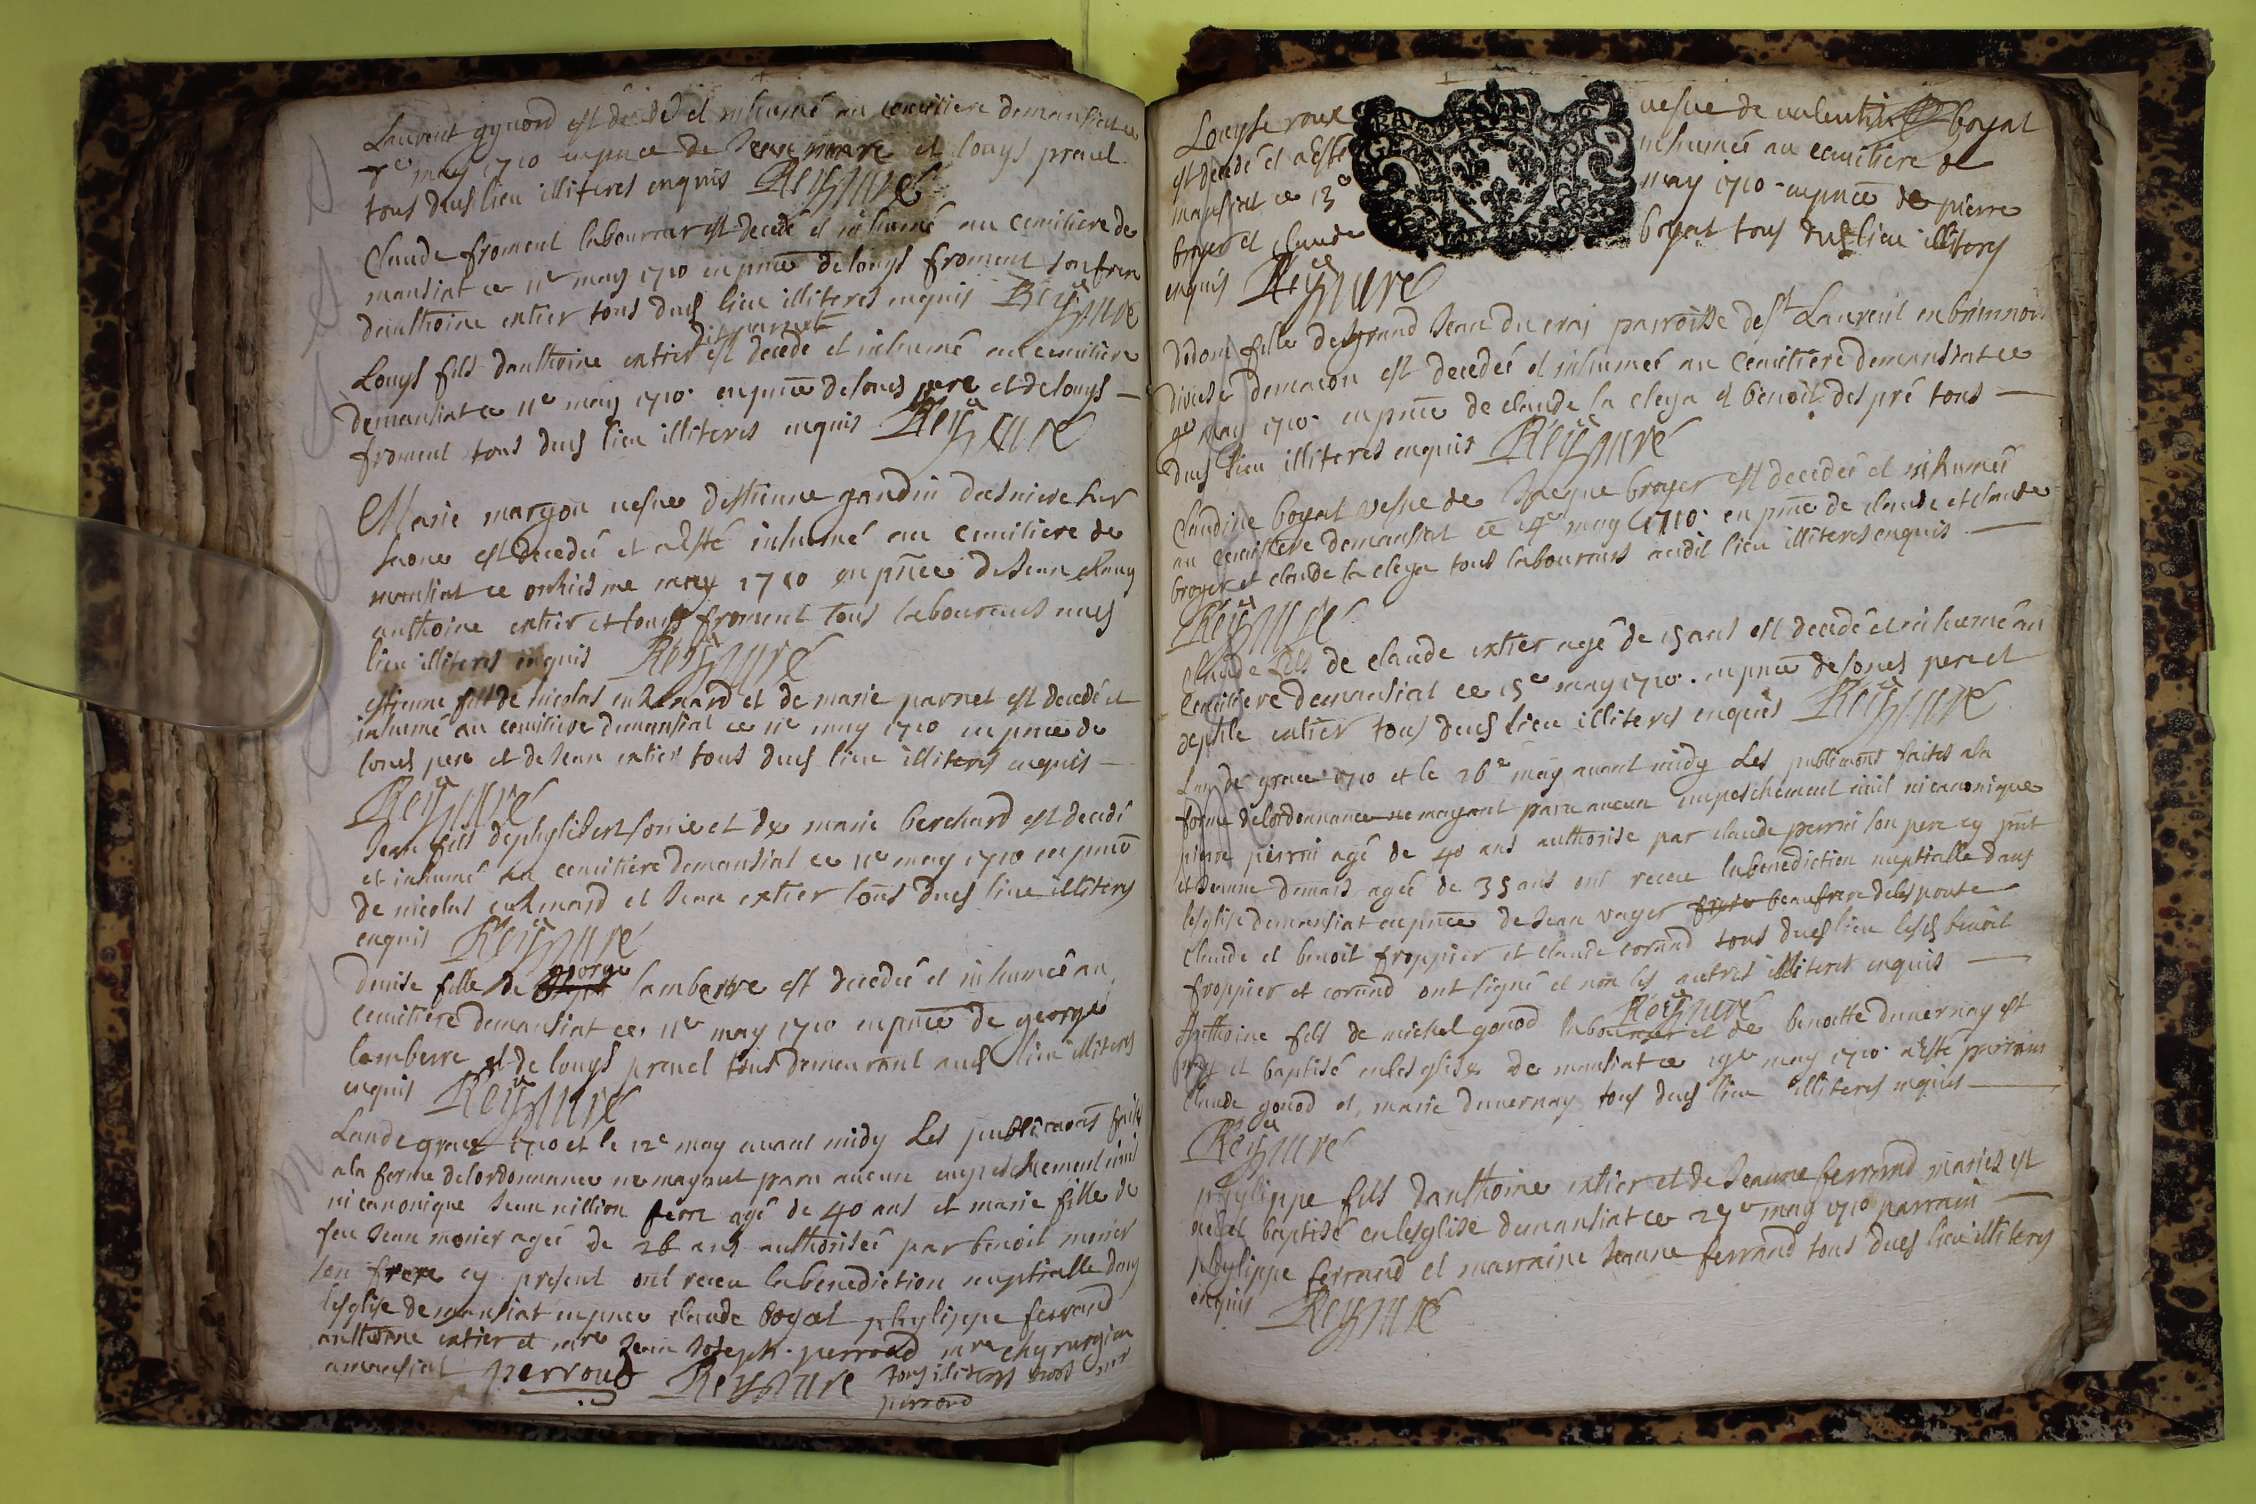 Laurent gynord est décédé et inhumé au cemitiere demansiat ce
7e may 1710 en pnce de Jean et louys preuel
tous dud lieu illiteres enquis Rey curé
Claude froment laboureur est decedé et inhumé au cemitiere de
mansiat ce 11e may 1710 en pnce de louys froment son frere
danthoine extier tous dud lieu illiteres enquis Rey curé
dit parnet
Louys fils danthoine extier est decedé et inhumé au cemitiere
demansiat ce 11e may 1710 en pnce desond pere et de louys
froment tous dud lieu illiteres enquis Rey curé
Marie margon vesue destienne gandin
saone est decedée et a esté inhumé au cemitiere de
mansiat ce onhiesme may 1710 en pnce de Jean
anthoine extier et louys froment tous laboureurs aud
lieu illiteres enquis Rey curé
estienne fils de nicolas enRenard et de marie parnet est decedé et
inhumé au cemitiere demansiat ce 11e may 1710 en pnce de
sond pere et de Jean extier tous dud lieu illiteres enquis
Rey curé
Jean fils dephylibert sonie et de marie berchard est decedé
et inhumé au cemitiere demansiat ce 11e may 1710 en pnce
de nicolas enRenard et Jean extier tous dud lieu illiteres
enquis Rey curé
george
denise fille de lamberre est decedée et inhumée au
cemitiere demansiat ce 11e may 1710 en pnce de george
lamberre et de louys preuel tous demeurant aud lieu illiteres
enquis Rey curé
Lan de grace 1710 et le 12e may auant midy Les publicaons faites
a la forme delordonnance ne mayant paru aucun empeschement ciuil
ni canonique Jean nillion agé de 40 ans et marie fille de
feu Jean monier agée de 26 ans authorisée par benoit monier
son frere cy present ont receu la benediction nuptialle dans
lesglise demansiat en pnce claude boyat phylippe ferrand
anthoine extier et mre Jean Joseph perroud mre chyrurgien
amansiat perroud Rey curé tous iliteres
perroud
Louyse roux vesue de valentin boyat
est decedé et a esté inhumée au cemitiere de
mansiat ce 13e may 1710 en pnce de pierre
broyer et claude boyat tous dud lieu illiteres
enquis Rey curé
dodon fille degrand Jean du crai parroisse de st Laurent en
diocese demacon est decedée et inhumée au cemitiere demansiat ce
may 1710 en pnce de claude la cleya et benoit des pré tous
dud lieu illiteres enquis Rey curé
Claudine boyat vesue de Jacque broyer est decedée et inhumée
au cemitiere demansiat ce 14e may 1710 en pnce de claude et claude
broyer et claude la cleya tous laboureurs audit lieu illiteres enquis
Rey curé
claude fils de claude extier agé de 15 ans est decedé et inhumé au
cemitiere demansiat ce 15e may 1710 en pnce de sond pere et
extier tous dud lieu illiteres enquis Rey curé
Lan de grace 1710 et le 26e may auant midy Les publicaons faites a la
forme delordonnance ne mayant paru aucun empeschement ciuil ni canonique
pierre perrin agé de 40 ans authorisé par claude perrin son pere cy pnt
et Jeanne agée de 35 ans ont receu la benediction nuptialle dans
lesglise demansiat en pnce de Jean vayer beaufrere delespouse
claude et benoit froppier et claude corand tous dud lieu lesd benoit
froppier et corand ont signé et non les autres illiteres enquis
Rey curé
Anthoine fils de michel gonod laboureur et de benoitte duuernay est
et baptisé en lesglise de mansiat ce may 1710 a esté parrain
Claude gonod et marie duuernay tous dud lieu illiteres enquis
Rey curé
phylippe fils danthoine extier et de Jeanne ferrand mariez est
né et baptisé en lesglise demansiat ce may 1710 parrain
phylippe ferrand et marraine Jeanne ferrand tous dud lieu illiteres
enquis Rey curé